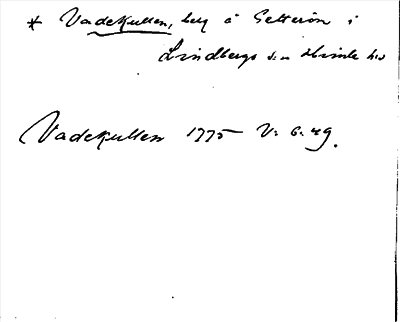 * Vadekullen, berg å Getterön i
Lindbergs sn Himle hd
Vadekullen 1775 V: 6. 49.